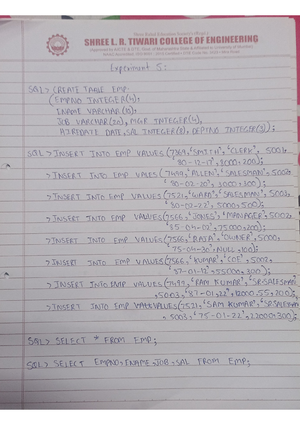 SHREE L. R. TIWARI COLLEGE OF ENGINEERING
Experiment 5:
SQL> CREATE TABLE EMP
(EMPNO INTEGER(4),
ENAME VARCHAR(15),
JOB VARCHAR(20), MGR INTEGER(4),
HIREDATE DATE, SAL INTEGER(8), DEPTNO INTEGER(3));
SQL> INSERT INTO EMP VALUES (7369, 'SMITH', 'CLERK', 5001,
'80-12-17', 8000, 200);
> INSERT INTO EMP VALES (7499, 'ALLEN', 'SALESMAN', 5002,
'80-02-20', 3000, 300);
> INSERT INTO EMP VALUES (7521, 'WARD', 'SALESMAN', 5003,
'80-02-22', 5000, 500);
> INSERT INTO EMP VALUES (7566, 'JONES', 'MANAGER', 5002,
'85-04-02', 75000, 200);
> INSERT INTO EMP VALUES (7566, 'RAJA', 'OWNER', 5000,
'75-04-30', NULL, 100);
> INSERT INTO EMP VALUES (7566, 'KUMAR', 'COE', 5002,
'87-01-12', 55000, 300);
> INSERT INTO EMP VALUES (7499, 'RAM KUMAR', 'SR.SALESMAN',
5003, '87-01-22', 12000.55, 200);
> INSERT INTO EMP VALUES (7521, 'SAM KUMAR', 'SR.SALESMAN',
5003, '75-01-22', 22000, 300);
SQL> SELECT * FROM EMP;
SQL> SELECT EMPNO, ENAME, JOB, SAL FROM EMP;